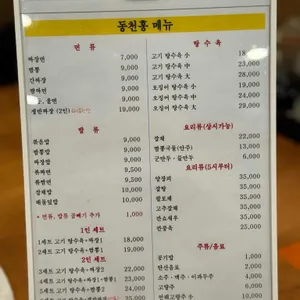 동천홍 메뉴
면 류
짜장면 7,000
짬뽕 9,000
간짜장 9,000
9,000
쫄면 9,000
쟁반짜장 (2인) 19,000
밥 류
볶음밥 9,000
짬뽕밥 9,000
짜장밥 9,000
9,500
9,500
잡채밥 9,500
해물덮밥 10,000
* 면류, 밥류 곱빼기 추가 1,000
1인 세트
1세트 고기 탕수육+짜장1 18,000
2세트 고기 탕수육+짬뽕1 19,000
2인 세트
3세트 고기 탕수육+짜장2 22,000
4세트 고기 탕수육+짜장1+짬뽕1 23,000
5세트 고기 탕수육+짬뽕2 24,000
탕 수 육
고기 탕수육 小
고기 탕수육 中 23,000
고기 탕수육 大 28,000
오징어 탕수육 小 19,000
오징어 탕수육 中 24,000
오징어 탕수육 大 29,000
요리류(상시가능)
잡채 22,000
짬뽕국물(안주) 13,000
군만두·물만두 6,000
요리류(5시부터)
양장피 35,000
깐풍 35,000
팔보채 35,000
고추잡채 35,000
깐쇼새우 35,000
난자완스 35,000
주류/음료
공기밥 1,000
탄산음료 2,000
소주·맥주·이과두주 4,000
고량주
연태고량주 小